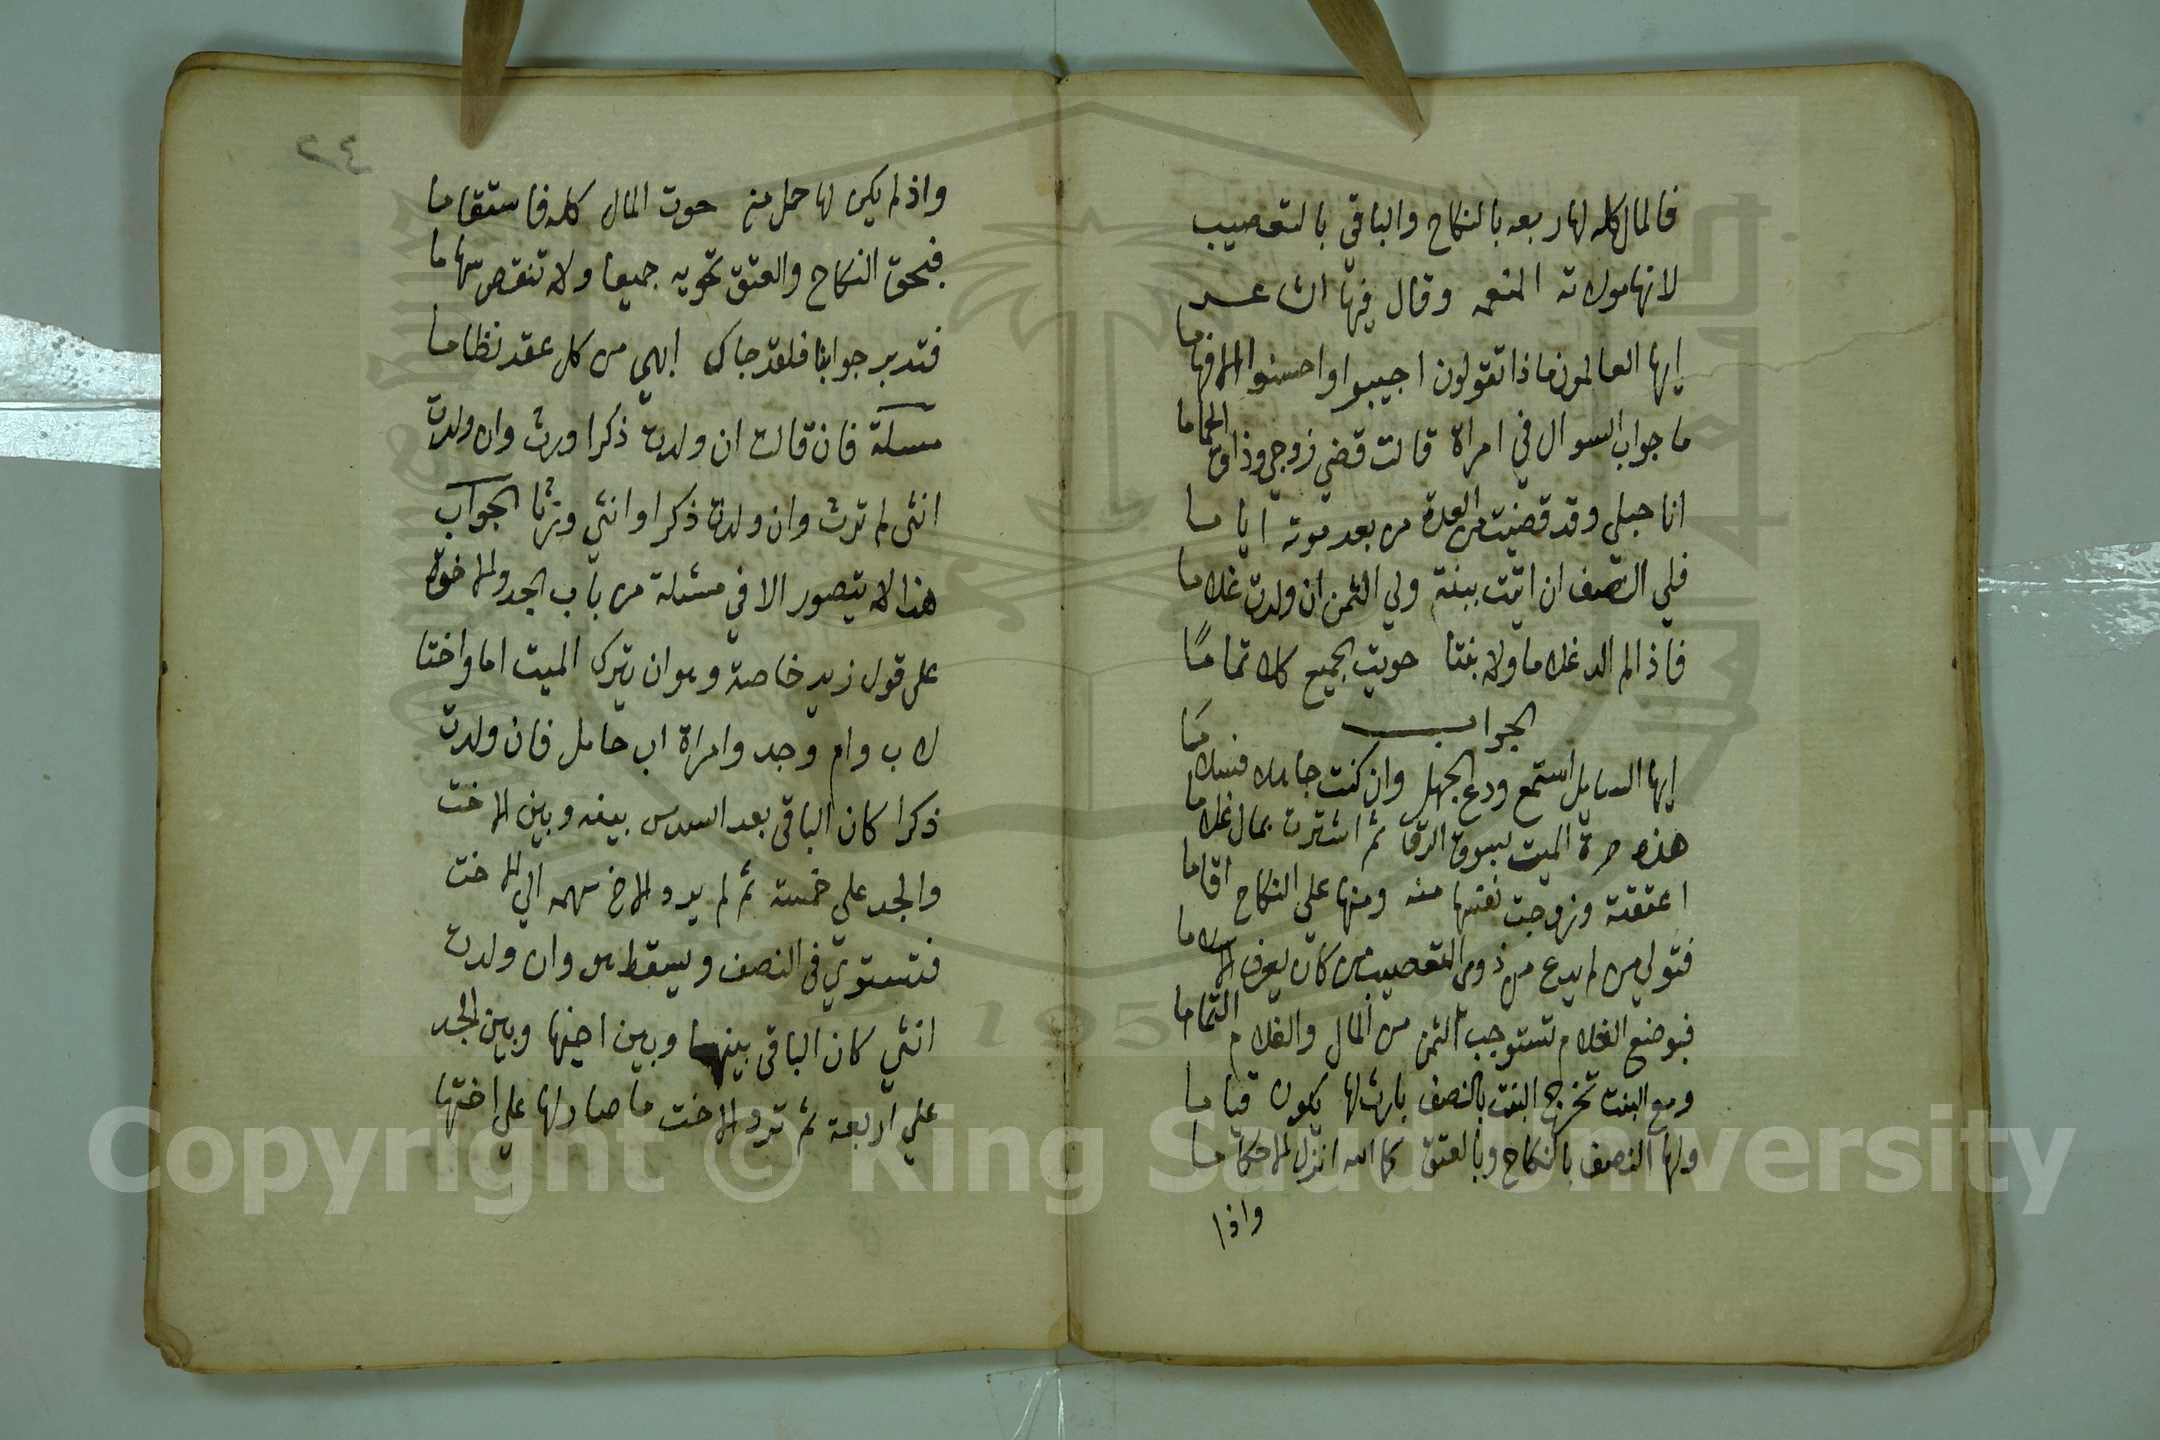 فالمال كله لها ربعه بالنكاح والباقي بالتعصيب
لانها مولاته المنعمه وقال فيها الشاعر
ايها العالمون ماذا تقولون اجيبوا واحسنوا الافهاما
ما جواب السوال في امراة قالت قضي زوجي وذاق الحماما
انا حبلي وقد قضيت من العدة من بعد موته اياما
فلي النصف ان اتيت ببنت ولي الثمن ان ولدت غلاما
فاذا لم الد غلاما ولا بنتا حويت الجميع كلا تماما
الجواب
ايها السايل استمع ودع الجهل وان كنت جاهلا فسلاما
هذه حرة اتيت بسوق الرقا ثم اشترت بمال غلاما
اعتقته وزوجت نفسها منه ومنها علي النكاح اقاما
فتولي من لم يدع من ذوي التعصيب من كان يعرف الاسلاما
فبوضع الغلام تستوجب الثمن من المال والغلام التماما
ومع البنت تخرج البنت بالنصف بارث لها يكون قياما
ولها النصف بالنكاح وبالعتق كما الله انزل الاحكاما
واذا
٢٤
واذ لم يكن لها حمل منه حوت المال كله فاستقاما
فبحق النكاح والعتق تحويه جميعا ولا تنقص سهاما
فتدبر جوابنا فلقد جاك ابهي من كل عقد نظاما
مسلة فان قالت ان ولدت ذكرا ورث وان ولدت
انثى لم ترث وان ولدت ذكرا وانثي ورثا الجواب
هذا لا يتصور الا في مسئلة من باب الجد والاخوة
على قول زيد خاصة وهو ان يترك الميت اما واختا
لاب وام وجد وامراة اب حامل فان ولدت
ذكرا كان الباقى بعد السدس بينه وبين الاخت
والجد علي خمسة ثم لم يرد الاخ سهمه الي الاخت
فتستوي في النصف ويسقط هو وان ولدت
انثي كان الباقى بينها وبين اختها وبين الجد
علي اربعة ثم ترد الاخت ما صار لها علي اختها
Copyright © King Saud University
1957